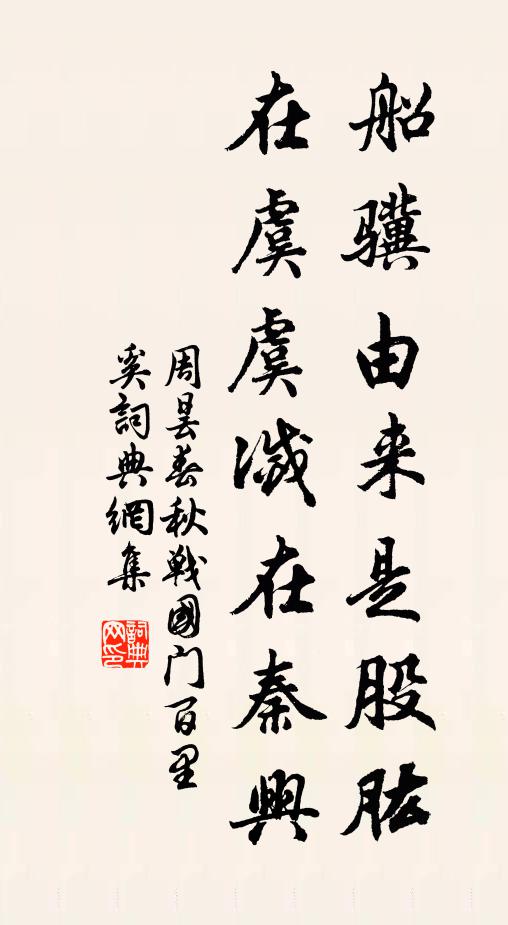 船骥由来是股肱
在虞虞滅在秦興
周昙春秋戦國门百里
奚詞典網集
詞典
网印